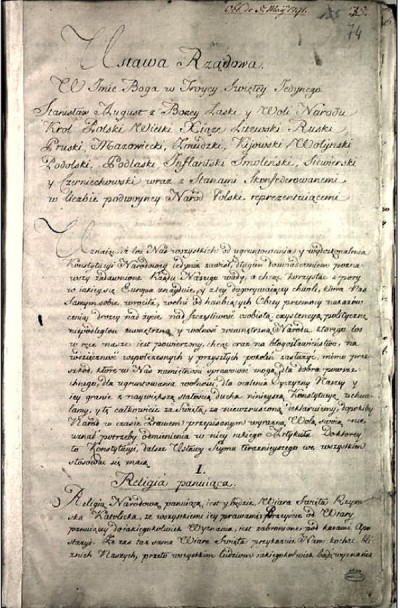 Ustawa Rządowa.
W Imie Boga w Troycy Swiętey Jedynego
Stanisław August z Bożey Łaski y Woli Narodu
Krol Polski Wielki Xiąże Litewski Ruski
Pruski, Mazowiecki, Zmudzki, Kijowski Wołyński
Podolski, Podlaski Inflantski Smoleński, Siewierski
y Czerniechowski wraz z Stanami Skonfederowanemi
w liczbie podwoyney Narod Polski reprezentuiącemi
Uznaiąc, iż los Nas wszystkich od ugruntowania y wydoskonalenia
Konstytucyi Narodowey iedynie zawisł, długim doświadczeniem pozna-
wszy zadawnione Rządu Naszego wady, a chcąc korzystać z pory
w iakiey się Europa znayduie, y z tey dogorywaiącey chwili, ktora Nas
Samym sobie wrociła, wolni od hańbiących obcey przemocy nakazow
ceniąc drożey nad życie, nad szczęśliwość osobistą, exystencyą polityczną
niepodległość zewnętrzną, y wolność wewnętrzną Narodu, ktorego los
w ręce nasze iest powierzony, chcąc oraz na błogosławieństwo, na
wdzięczność wspołczesnych y przyszłych pokoleń zasłużyć, mimo prze-
szkod, ktore w Nas namiętności sprawować mogą, dla dobra powsze-
chnego, dla ugruntowania wolności, dla ocalenia Oyczyzny Naszey y
iey granic z naywiększą stałością ducha ninieyszą Konstytucyę uchwa-
lamy, y tę całkowicie za świętą, za niewzruszoną deklaruiemy, dopokiby
Narod w czasie Prawem przepisanym wyraźną Wolą swoią nie
uznał potrzeby odmienienia w niey iakiego Artykułu. Do ktorey
to Konstytucyi, dalsze Ustawy Seymu teraznieyszego we wszystkim
stosować się maią
I.
Religia panuiąca.
Religią Narodową panuiącą, iest y będzie Wiara Swięta Rzym-
ska Katolicka, ze wszystkiemi iey prawami. Przeyście od Wiary
panuiącey do iakiegokolwiek Wyznania, iest zabronione pod karami Apo-
stazyi. Ze zas taż sama Wiara Swięta przykazuie Nam kochać bli-
znich Naszych, przeto wszystkim ludziom iakiegokolwiek bądź wyznania